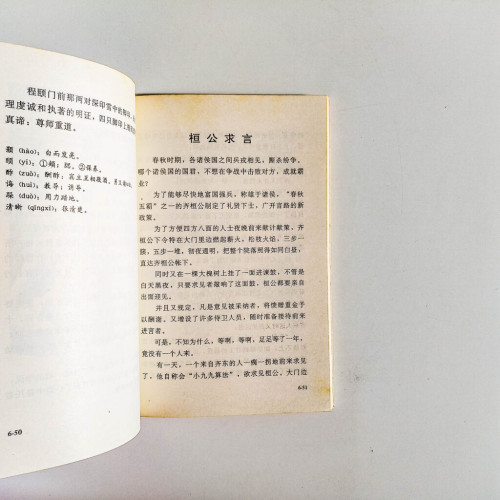 程颐门前那两对深印雪中的脚
理虔诚和执著的明证，四只脚印上
真谛：尊师重道。
颢（hào）：白而发亮。
颐（yí）：①颊；腮。②保养。
酢（zuò）：酬酢：宾主互相敬酒，
诲（huì）：教导；诱导。
跺（duò）：用力踏地。
清晰（qīngxī）：很清楚。
6-50
桓公求言
春秋时期，各诸侯国之间兵戎相见，厮杀纷争。
哪个诸侯国的国君，不想在争战中击败对方，成就霸
业？
为了能够尽快地富国强兵，称雄于诸侯，“春秋
五霸”之一的齐桓公制定了礼贤下士，广开言路的新
政策。
为了方便四方八面的人士夜晚前来献计献策，齐
桓公下令特在大门里边燃起薪火。松枝火焰，三步一
簇，五步一堆，彻夜通明，把整个院落照得如同白昼，
直达齐桓公帐下。
同时又在一棵大槐树上挂了一面进谏鼓，不管是
白天黑夜，只要求见者敲响了这面鼓，桓公都要亲自
出面迎见。
并且又规定，凡是意见被采纳者，将馈赠重金予
以酬谢。又增设了许多侍卫人员，随时准备接待前来
进言者。
可是，不知为什么，等啊，等啊，足足等了一年，
竟没有一个人来。
有一天，一个来自齐东的人一瘸一拐地前来求见
了，他自称会“小九九算法”，欲求见桓公。大门边
6-51